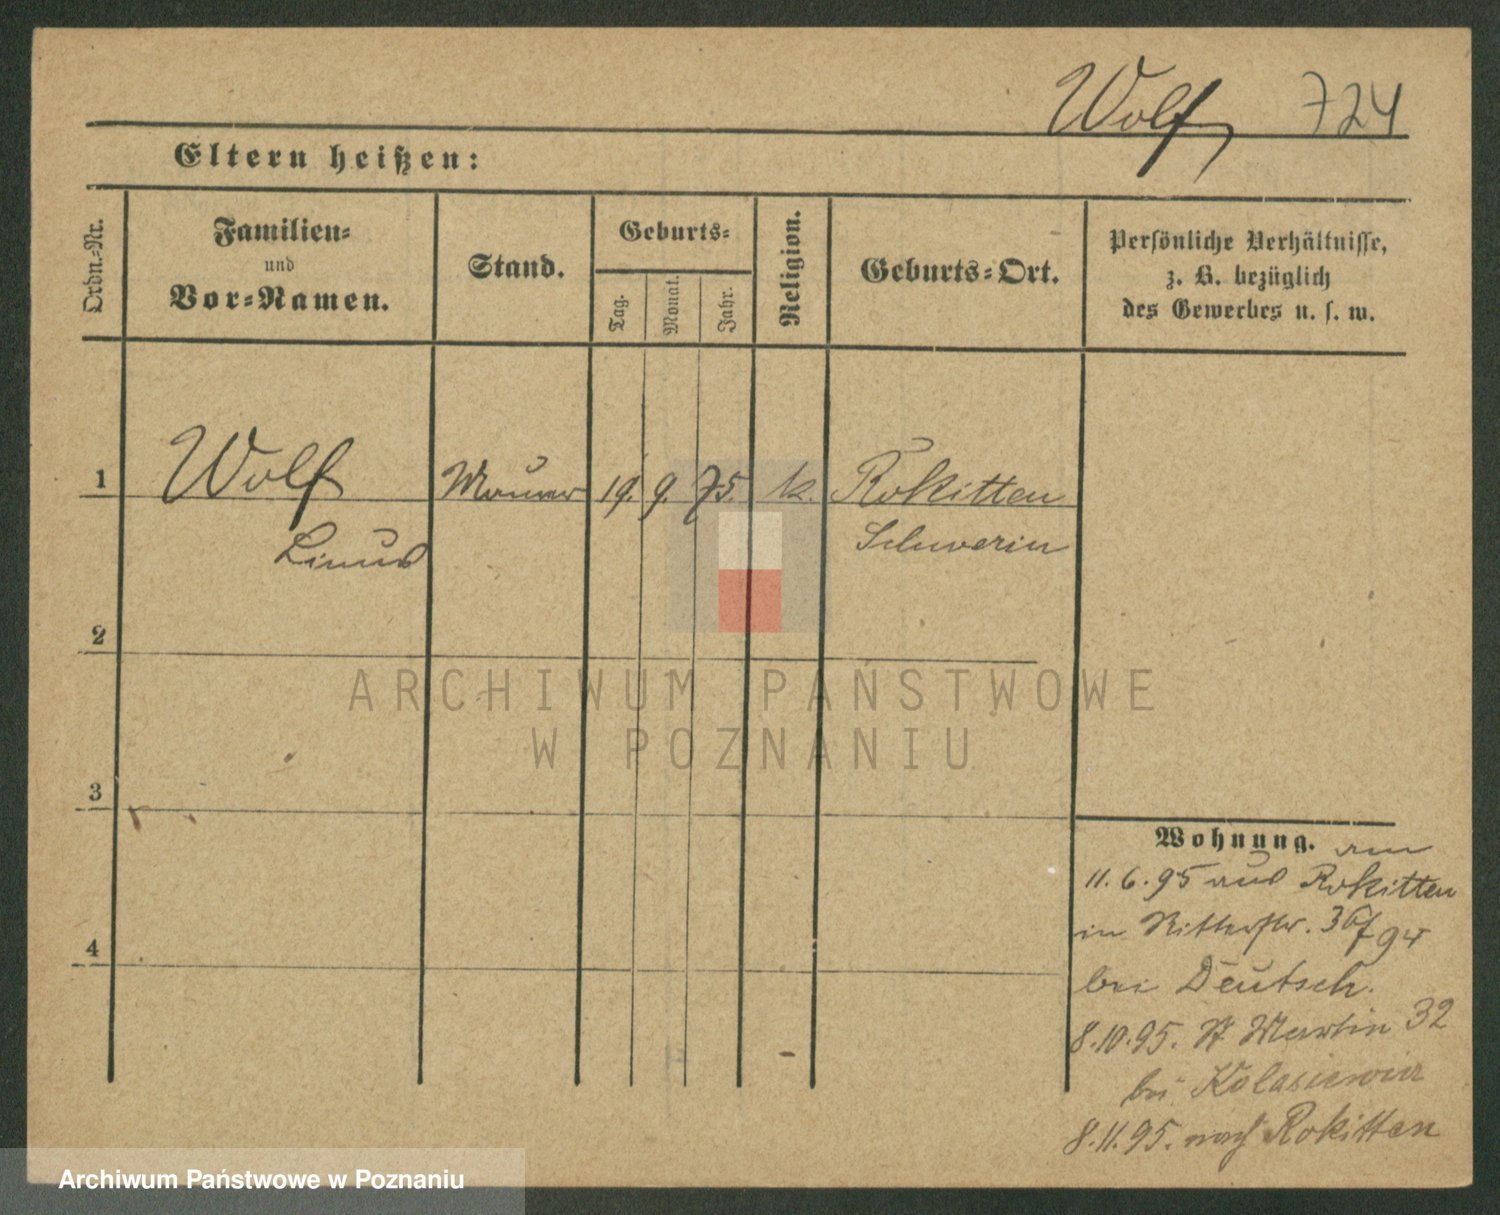 Wolf 724
Eltern heißen:
Ordn.-Nr.
Familien-
und
Vor-Namen.
Stand.
Geburts-
Tag.
Monat.
Jahr.
Religion.
Geburts-Ort.
Persönliche Verhältnisse,
z. B. bezüglich
des Gewerbes u. s. w.
1 Wolf Maurer 19. 9. 75. k. Rokitten
Linus Schwerin
2
3
4
Wohnung. am
11.6.95 aus Rokitten
in Ritterstr. 36/
bei Deutsch.
8.10.95. St Martin 32
bei
8.11.95. nach Rokitten
ARCHIWUM PAŃSTWOWE
W POZNANIU
Archiwum Państwowe w Poznaniu